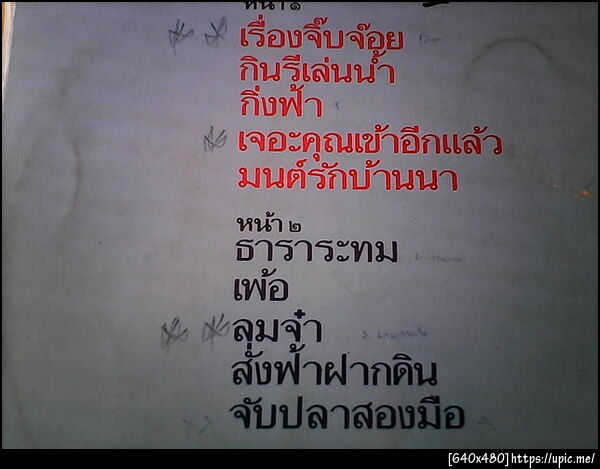 หน้า ๑
เรื่องจิ๊บจ๊อย
กินรีเล่นน้ำ
กิ่งฟ้า
เจอะคุณเข้าอีกแล้ว
มนต์รักบ้านนา
หน้า ๒
ธาราระทม
เพ้อ
ลุมจ๋า
สั่งฟ้าฝากดิน
จับปลาสองมือ
[640x480]https://upic.me/